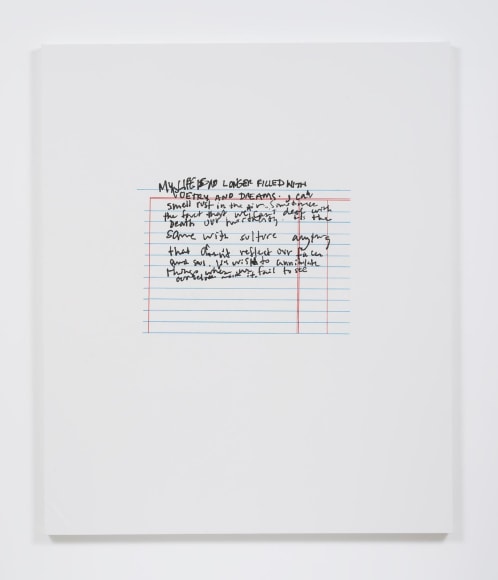 MY LIFE IS NO LONGER FILLED WITH
POETRY AND DREAMS. I can
smell rust in the air. Sometimes
the fact that we can't deal with
Death our mortality. the
same with culture anything
that doesn't reflect our faces
and soul. We wish to annihilate
things when we fail to see
ourselves it.